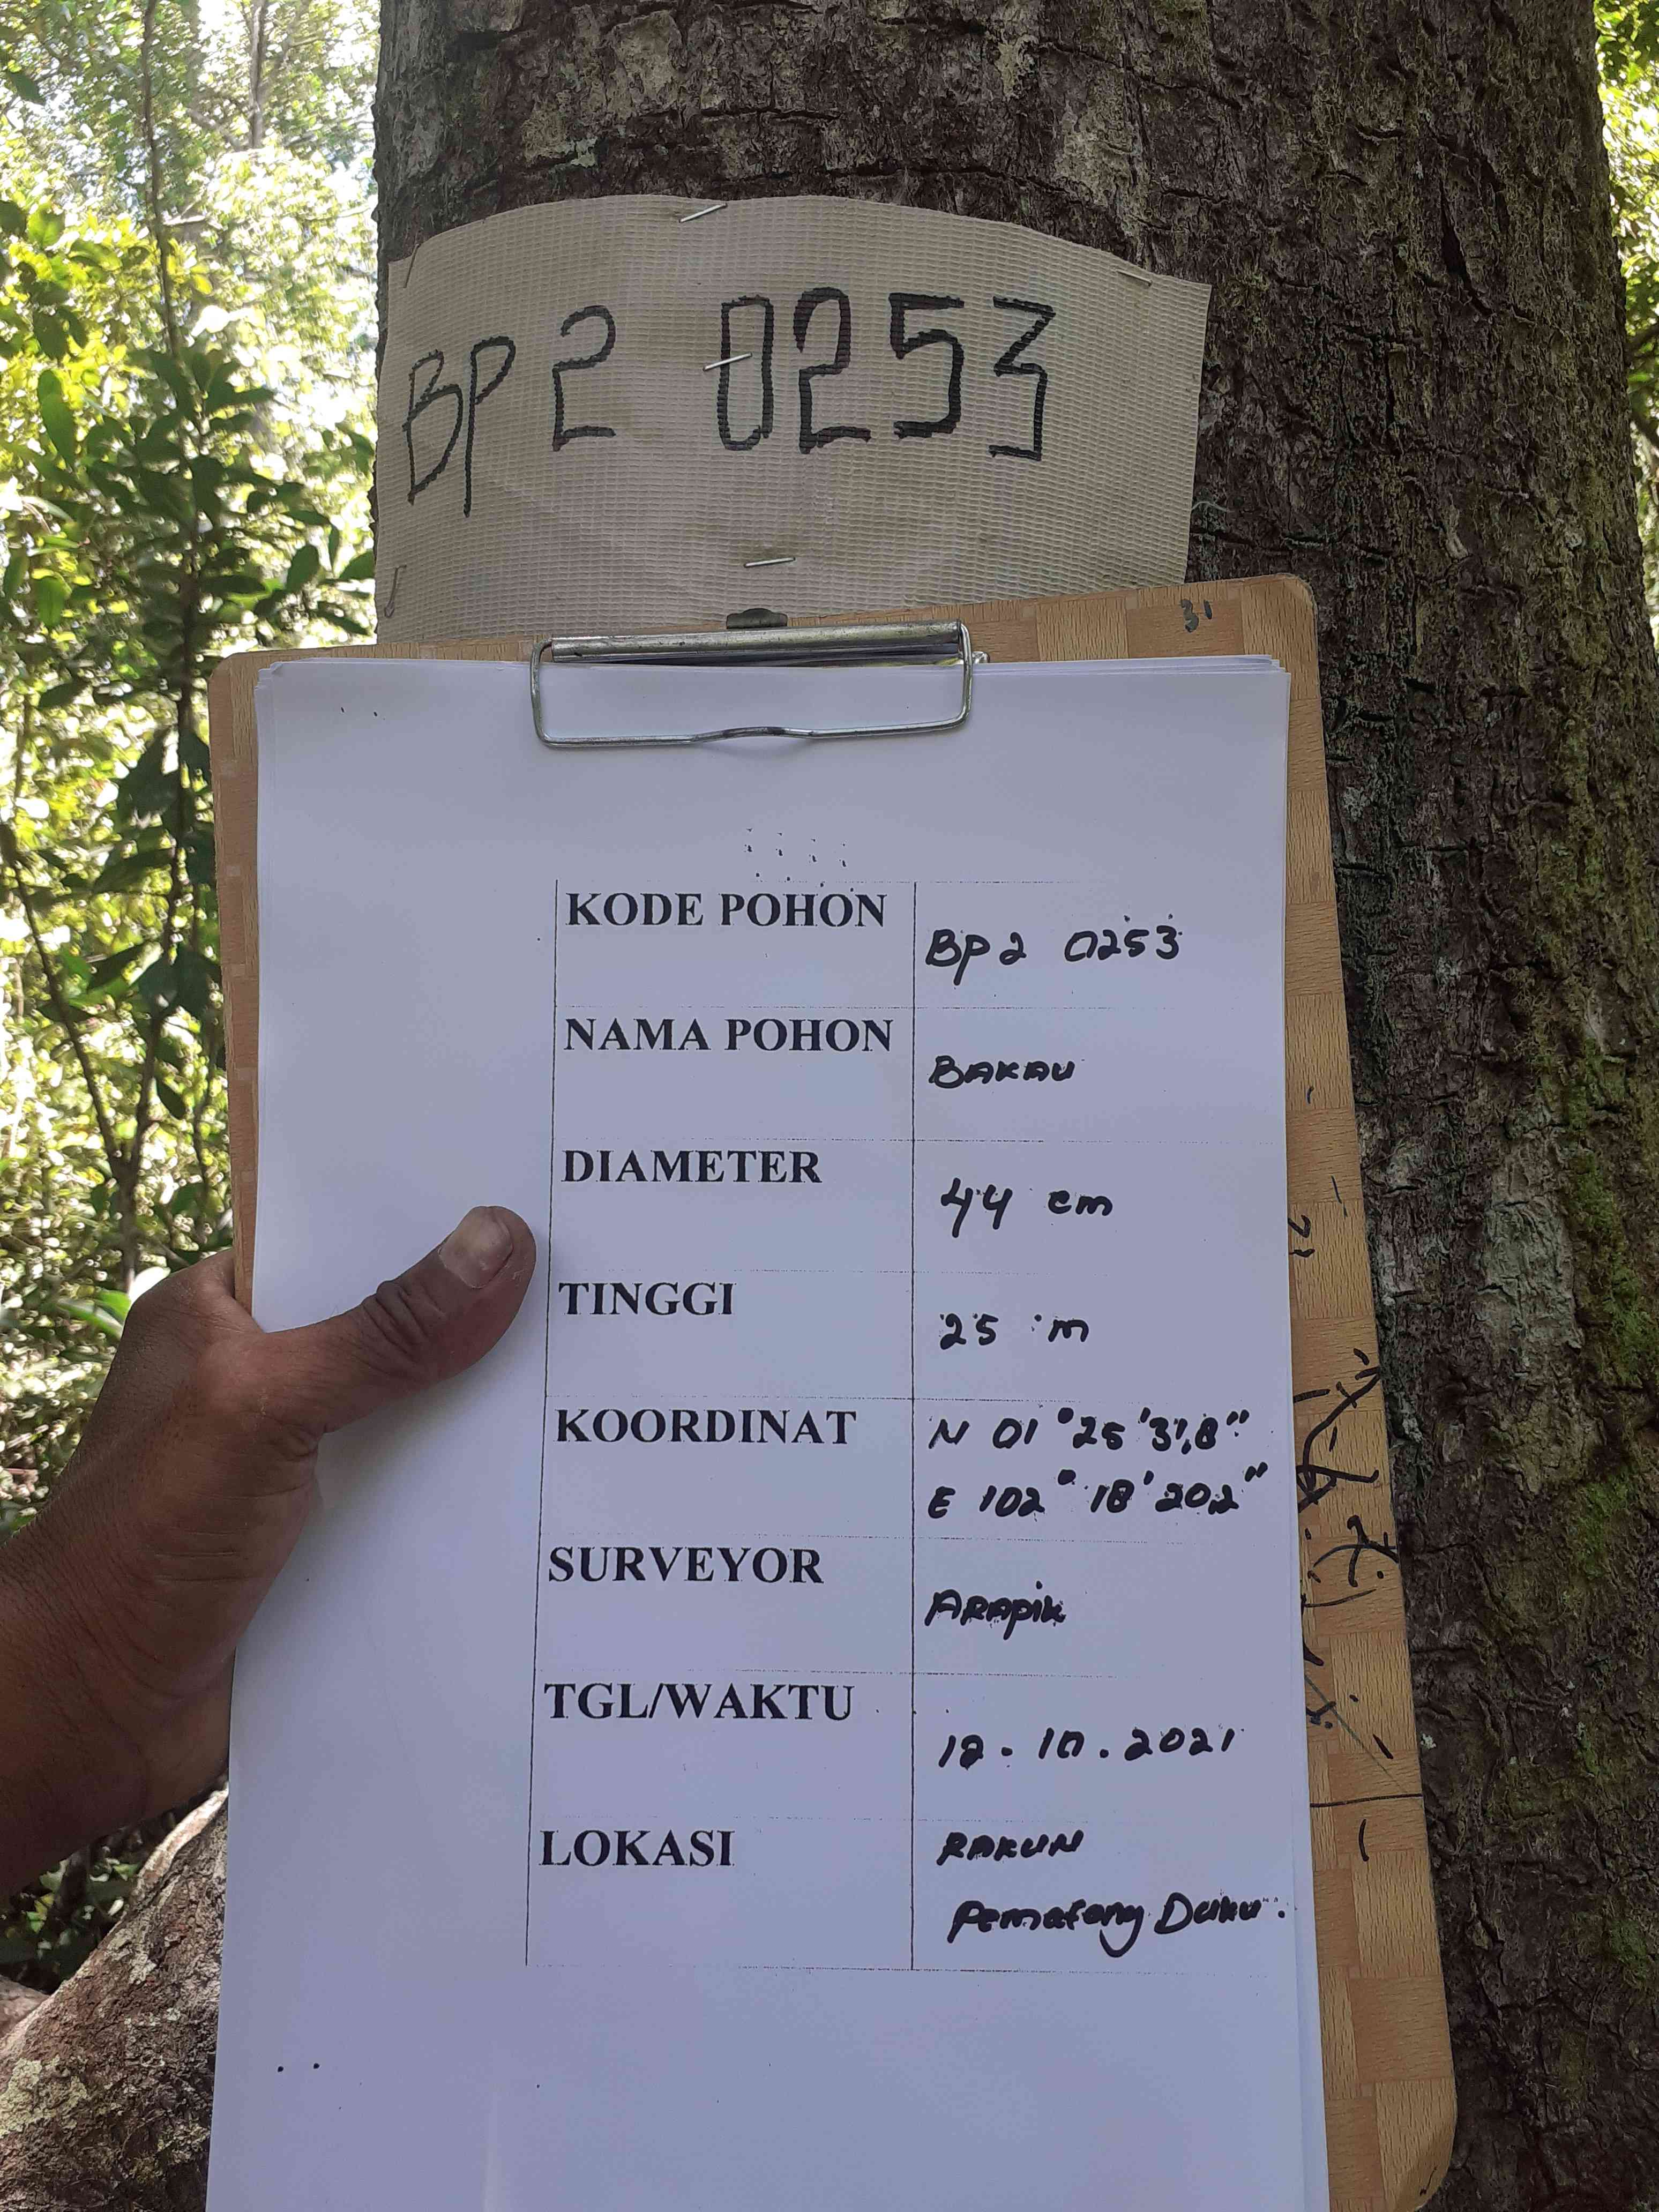 BP 2 0253
31
KODE POHON
BP 2 0253
NAMA POHON
BAKAU
DIAMETER
44 cm
TINGGI
25 m
KOORDINAT
N 01° 25' 31,8"
E 102° 18' 20,2"
SURVEYOR
ARAPIK
TGL/WAKTU
12.10.2021
LOKASI
RAKUN
Pematang Duku.